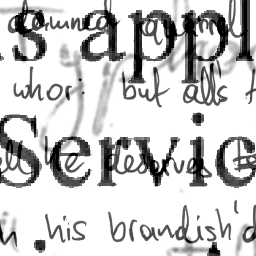 damned quarrel
s appl
whor: but all's
Servic
ell he deserves
his brandish'd